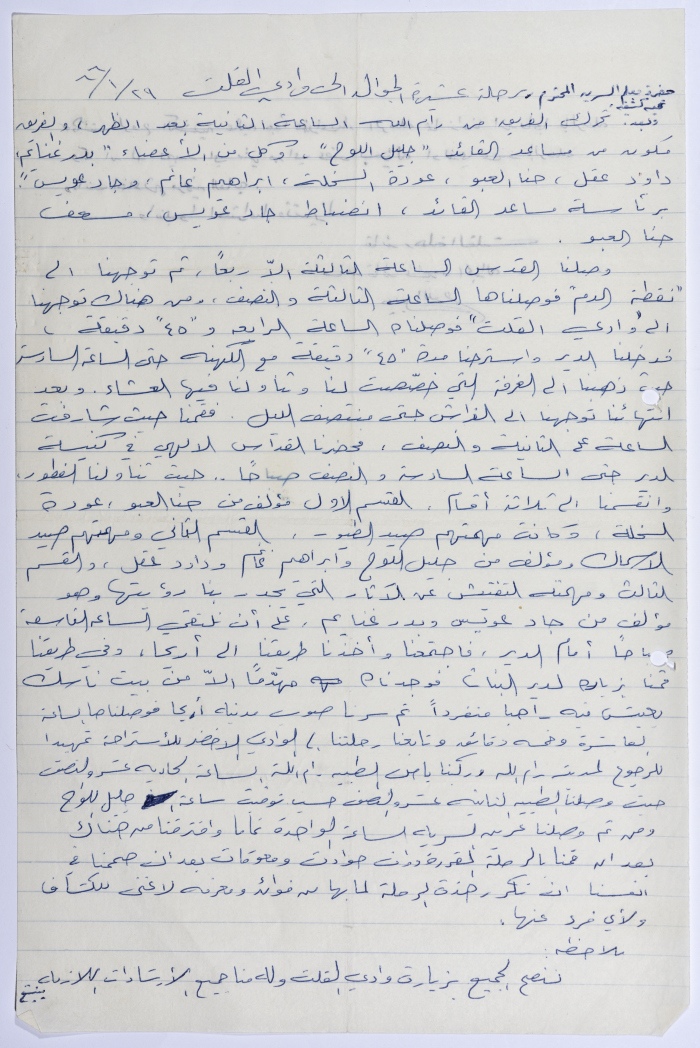 حضرة معلم السرية المحترم رحلة عشيرة الجوالة الى وادي القلت ٢٩/١/
تحية كشفية
وبعد: تحرك الفريق من رام الله الساعة الثانية بعد الظهر، والفريق
مكون من مساعد القائد "جليل اللوح"، وكل من الأعضاء "بدر غنايم،
داود عقل، حنا العبو، عودة النخلة، ابراهيم غانم، وجاد عويس"
برئاسة مساعد القائد، انضباط جاد عويس، مسعف
حنا العبو.
وصلنا القدس الساعة الثالثة الاّ ربعاً، ثم توجهنا الى
"نقطة الدم" فوصلناها الساعة الثالثة والنصف، ومن هناك توجهنا
الى "وادي القلت" فوصلناه الساعة الرابعة و "٤٥" دقيقة،
فدخلنا الدير واسترحنا مدة "٤٥" دقيقة مع الكهنة حتى الساعة السادسة
حيث ذهبنا الى الغرفة التي خصصت لنا وتناولنا فيها العشاء. وبعد
انتهائنا توجهنا الى الفراش حتى منتصف الليل. فقمنا حيث شارفت
الساعة على الثانية والنصف، فحضرنا القداس الالهي في كنيسة
الدير حتى الساعة السادسة والنصف صباحًا.. حيث تناولنا الفطور،
وانقسمنا الى ثلاثة أقسام، القسم الاول مؤلف من حنا العبو، عودة
النخلة، وكانت مهمتهم صيد الطيور، القسم الثاني ومهمتهم صيد
الاسماك ومؤلف من جليل اللوح وابراهيم غانم وداود عقل، والقسم
الثالث ومهمته التفتيش عن الآثار التي يجدر بنا رؤيتها وهو
مؤلف من جاد عويس وبدر غنايم، على أن نلتقي الساعة التاسعة
صباحًا أمام الدير، فاجتمعنا وأخذنا طريقنا الى أريحا، وفي طريقنا
قمنا بزيارة لدير البنات فوجدناه مهدّمًا الاّ من بيت ناسك
يعيش فيه راهبا منفرداً ثم سرنا صوب مدينة أريحا فوصلناها الساعة
العاشرة وخمسة دقائق وتابعنا رحلتنا الى الوادي الاخضر للأستراحة تمهيدا
للرجوع لمدينة رام الله وركبنا باص الطيبه رام الله الساعة الحاديه عشر والنصف
حيث وصلنا الطيبه الثانيه عشر والنصف حسب توقيت ساعة جليل اللوح
ومن ثم وصلنا عرين السريه الساعة الواحدة تماما وافترقنا من هناك
بعد ان قمنا بالرحلة المقررة دون حوادث ومعوقات بعد ان صممنا في
انفسنا ان تكرر هذه الرحلة لما بها من فوائد ومعرفه لاغنى للكشاف
ولأي فرد عنها.
ملاحظة:
ننصح الجميع بزيارة وادي القلت وله منا جميع الأرشادات اللازمه
يتبع